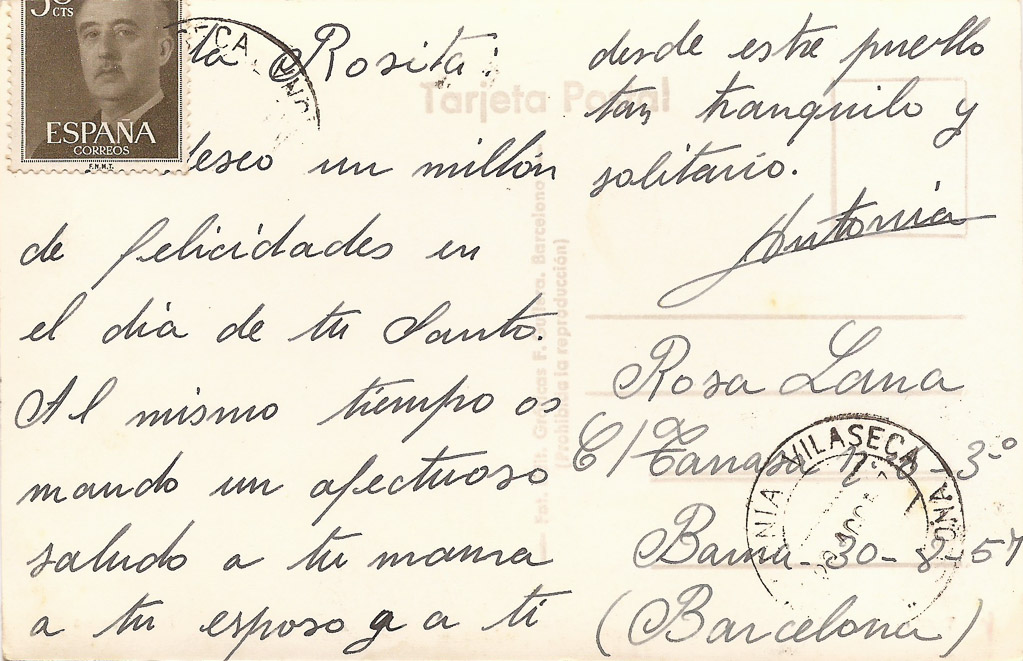 50
CTS
ESPAÑA
CORREOS
F.N.M.T.
ta Rosita:
deseo un millón
de felicidades en
el día de tu Santo.
Al mismo tiempo os
mando un afectuoso
saludo a tu mama
a tu esposo y a ti
desde este pueblo
tan tranquilo y
solitario.
Antonia
Tarjeta Postal
Barcelona
(Prohibida la reproducción)
Rosa Lana
C/ Tarrasa 3º
Barna - 30-8-57
(Barcelona)
VILASECA